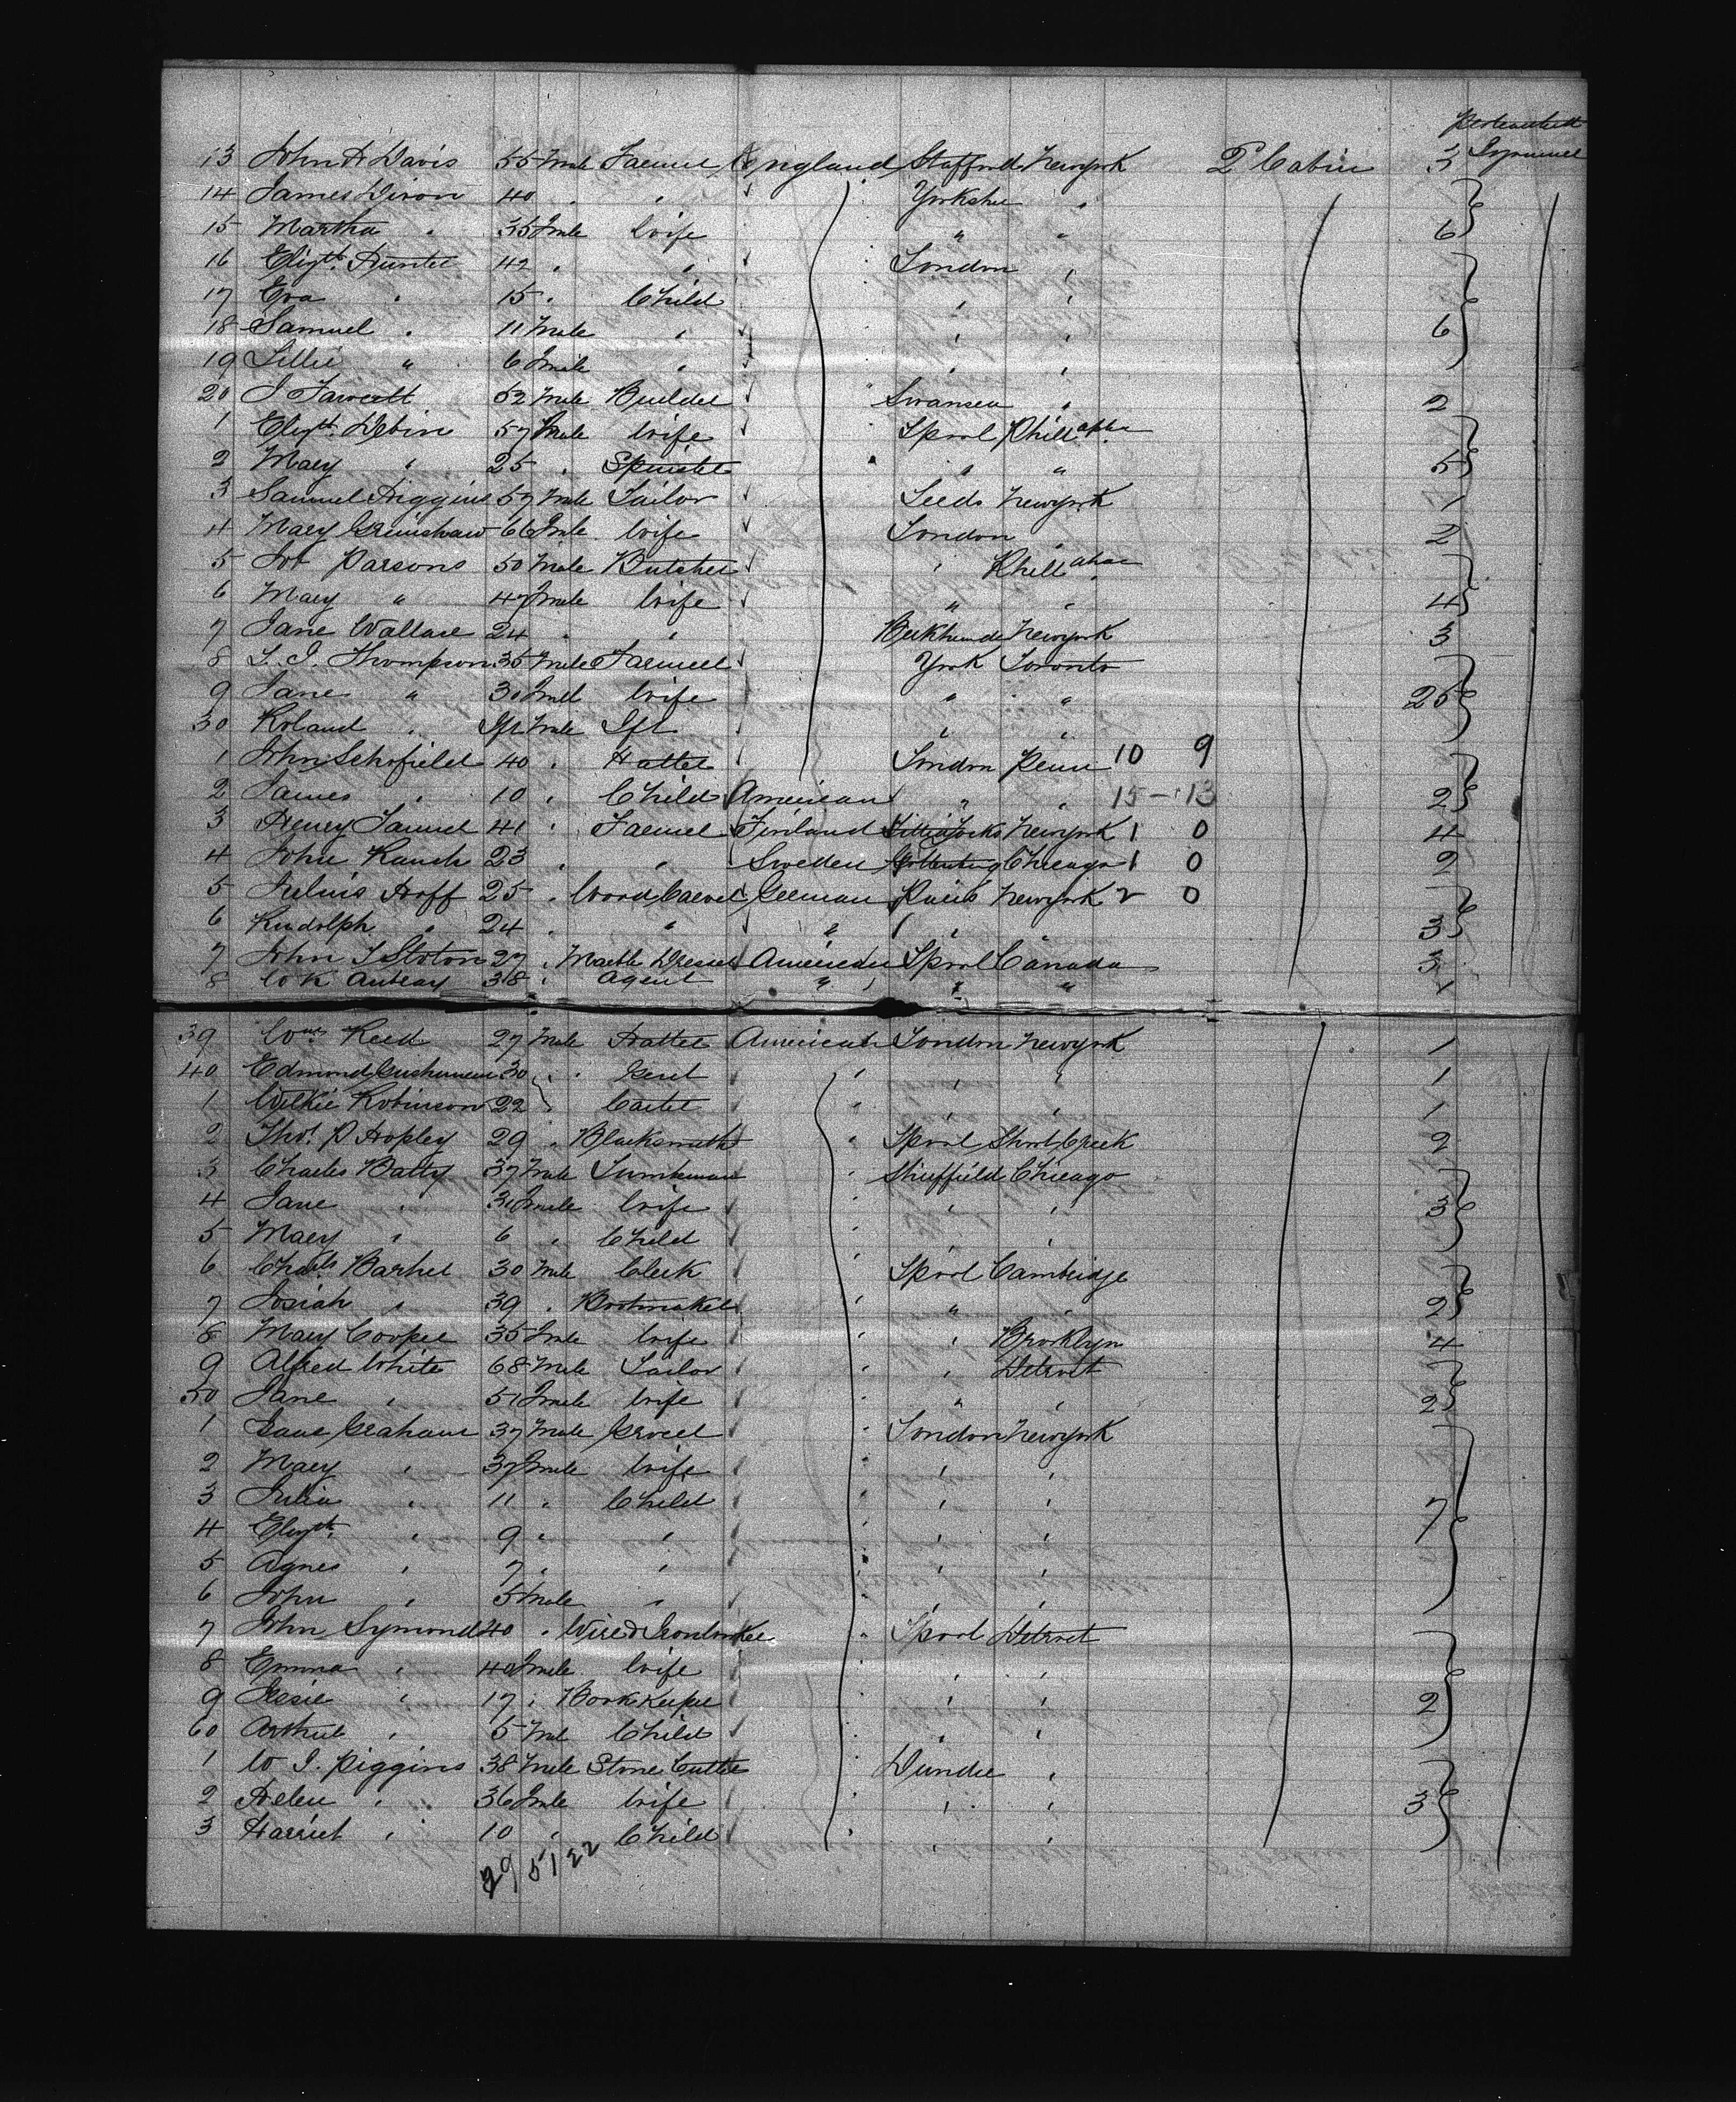 13 John H Davis 55 Male Farmer England Stafford Newyork 2d Cabin 3
14 James Dixon 40 " " Yorkshre "
15 Martha " 35 Fmale Wife " " 6
16 Elizth Hunter 42 " " London "
17 Eva " 15 " Child " "
18 Samuel " 11 Male " " " 6
19 Lillie " 6 Fmale " " "
20 J Fawcett 52 Male Builder " Swansea " 2
1 Elizth 57 Fmale Wife Lpool Philapha
2 Mary " 25 " Spinster " " 5
3 Samuel Higgins 57 Male Tailor Leeds Newyork 1
4 Mary Grimshaw 66 Fmale Wife London " 2
5 Parsons 50 Male Butcher " Philapha
6 Mary " 47 Fmale Wife " " 4
7 Jane Wallace 24 " " Newyork 3
8 Thompson 35 Male Farmer York Toronto
9 Jane " 30 Fmale Wife " " 25
30 Roland " Inft Male Inft " "
1 John Schofield 40 " Hatter London Penn 10 9
2 James " 10 " Child American " " 15-13 2
3 Henry 41 " Farmer Finland Newyork 1 0 4
4 John 23 " " Sweden Chicago 1 0 2
5 Julius Hoff 25 " Wood Carver German Paris Newyork 2 0
6 Rudolph " 24 " " " " " 3
7 John 27 " Marble Dresser American Lpool Canada 3
8 38 " Agent " " " 1
39 Wm Reed 27 Male Hatter American London Newyork 1
40 Edmond 30 " " " " 1
1 Wilkie Robinson 22 " Carter " " " 1
2 Thos P Hopley 29 " Blacksmith " Lpool Short Creek 2
3 Charles Batty 37 Male " Sheffield Chicago
4 Jane " 31 Fmale Wife " " " 3
5 Mary " 6 " Child " " "
6 Chals Barker 30 Male Clerk " Lpool Cambridge
7 Josiah " 39 " Bootmaker " " " 2
8 Mary Cooper 35 Fmale Wife " " Brooklyn 4
9 Alfred White 68 Male Tailor " " Detroit
50 Jane " 51 Fmale Wife " " 2
1 Graham 37 Male Grocer " London Newyork
2 Mary " 37 Fmale Wife " " "
3 Julia " 11 " Child " " " 7
4 Elizth " 9 " " " " "
5 Agnes " 7 " " " " "
6 John " 5 Male " " " "
7 John Symond 40 " " Lpool Detroit
8 Emma " 40 Fmale Wife " " "
9 Jesie " 17 " Book Keeper " " " 2
60 Arthur " 5 Male Child " " "
1 W J. Piggins 38 Male Stone Cutter " Dundee "
2 Helen " 36 Fmale Wife " " " 3
3 Harriet " 10 " Child " " "
29 51 22